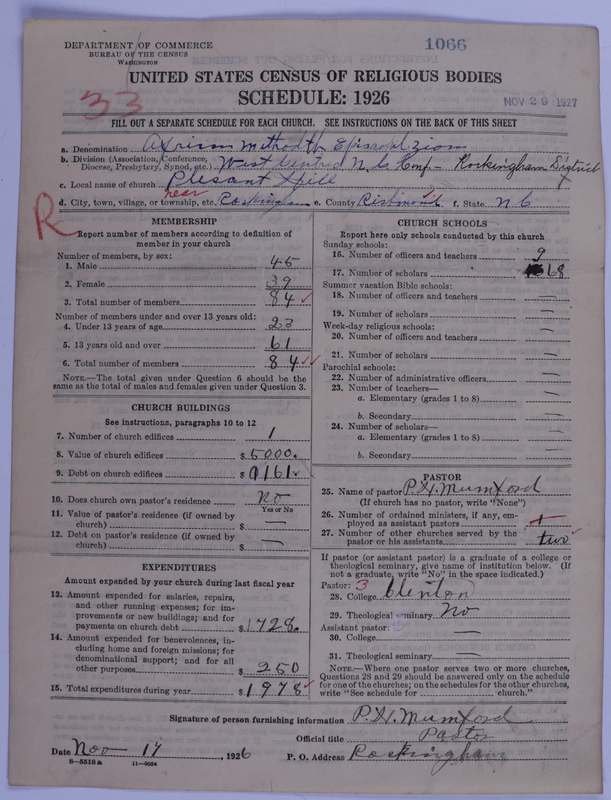 DEPARTMENT OF COMMERCE
BUREAU OF THE CENSUS
WASHINGTON
1066
UNITED STATES CENSUS OF RELIGIOUS BODIES
SCHEDULE: 1926
NOV 29 1927
33
FILL OUT A SEPARATE SCHEDULE FOR EACH CHURCH. SEE INSTRUCTIONS ON THE BACK OF THIS SHEET
a. Denomination African Methodth Episcopl Zion
b. Division (Association, Conference, Diocese, Presbytery, Synod, etc.) West Central N. C. Conf - Rockingham District
c. Local name of church Plesant Hill
near
d. City, town, village, or township, etc. Rockingham e. County Richmond f. State N C
R
MEMBERSHIP
Report number of members according to definition of
member in your church
Number of members, by sex:
1. Male 45
2. Female 39
3. Total number of members 84
Number of members under and over 13 years old:
4. Under 13 years of age 23
5. 13 years old and over 61
6. Total number of members 84
NOTE.—The total given under Question 6 should be the
same as the total of males and females given under Question 3.
CHURCH BUILDINGS
See instructions, paragraphs 10 to 12
7. Number of church edifices 1
8. Value of church edifices $ 5000.
9. Debt on church edifices $ 0161.
10. Does church own pastor's residence No
Yes or No
11. Value of pastor's residence (if owned by
church) $ —
12. Debt on pastor's residence (if owned by
church) $ —
EXPENDITURES
Amount expended by your church during last fiscal year
13. Amount expended for salaries, repairs,
and other running expenses; for im-
provements or new buildings; and for
payments on church debt $ 1728.
14. Amount expended for benevolences, in-
cluding home and foreign missions; for
denominational support; and for all
other purposes $ 250
15. Total expenditures during year $ 1978
CHURCH SCHOOLS
Report here only schools conducted by this church
Sunday schools:
16. Number of officers and teachers 9
17. Number of scholars 68
Summer vacation Bible schools:
18. Number of officers and teachers —
19. Number of scholars —
Week-day religious schools:
20. Number of officers and teachers —
21. Number of scholars —
Parochial schools:
22. Number of administrative officers —
23. Number of teachers—
a. Elementary (grades 1 to 8) —
b. Secondary —
24. Number of scholars—
a. Elementary (grades 1 to 8) —
b. Secondary —
PASTOR
25. Name of pastor P. H. Mumford
(If church has no pastor, write "None")
26. Number of ordained ministers, if any, em-
ployed as assistant pastors
27. Number of other churches served by the
pastor or his assistants two
If pastor (or assistant pastor) is a graduate of a college or
theological seminary, give name of institution below. (If
not a graduate, write "No" in the space indicated.)
Pastor: 3
28. College Clenton
29. Theological seminary No
Assistant pastor:
30. College —
31. Theological seminary —
NOTE.—Where one pastor serves two or more churches,
Questions 28 and 29 should be answered only on the schedule
for one of the churches; on the schedules for the other churches,
write "See schedule for church."
Signature of person furnishing information P. H. Mumford
Official title Pastor
Date Nov 17, 1926 P. O. Address Rockingham
8—5518 a 11—9684